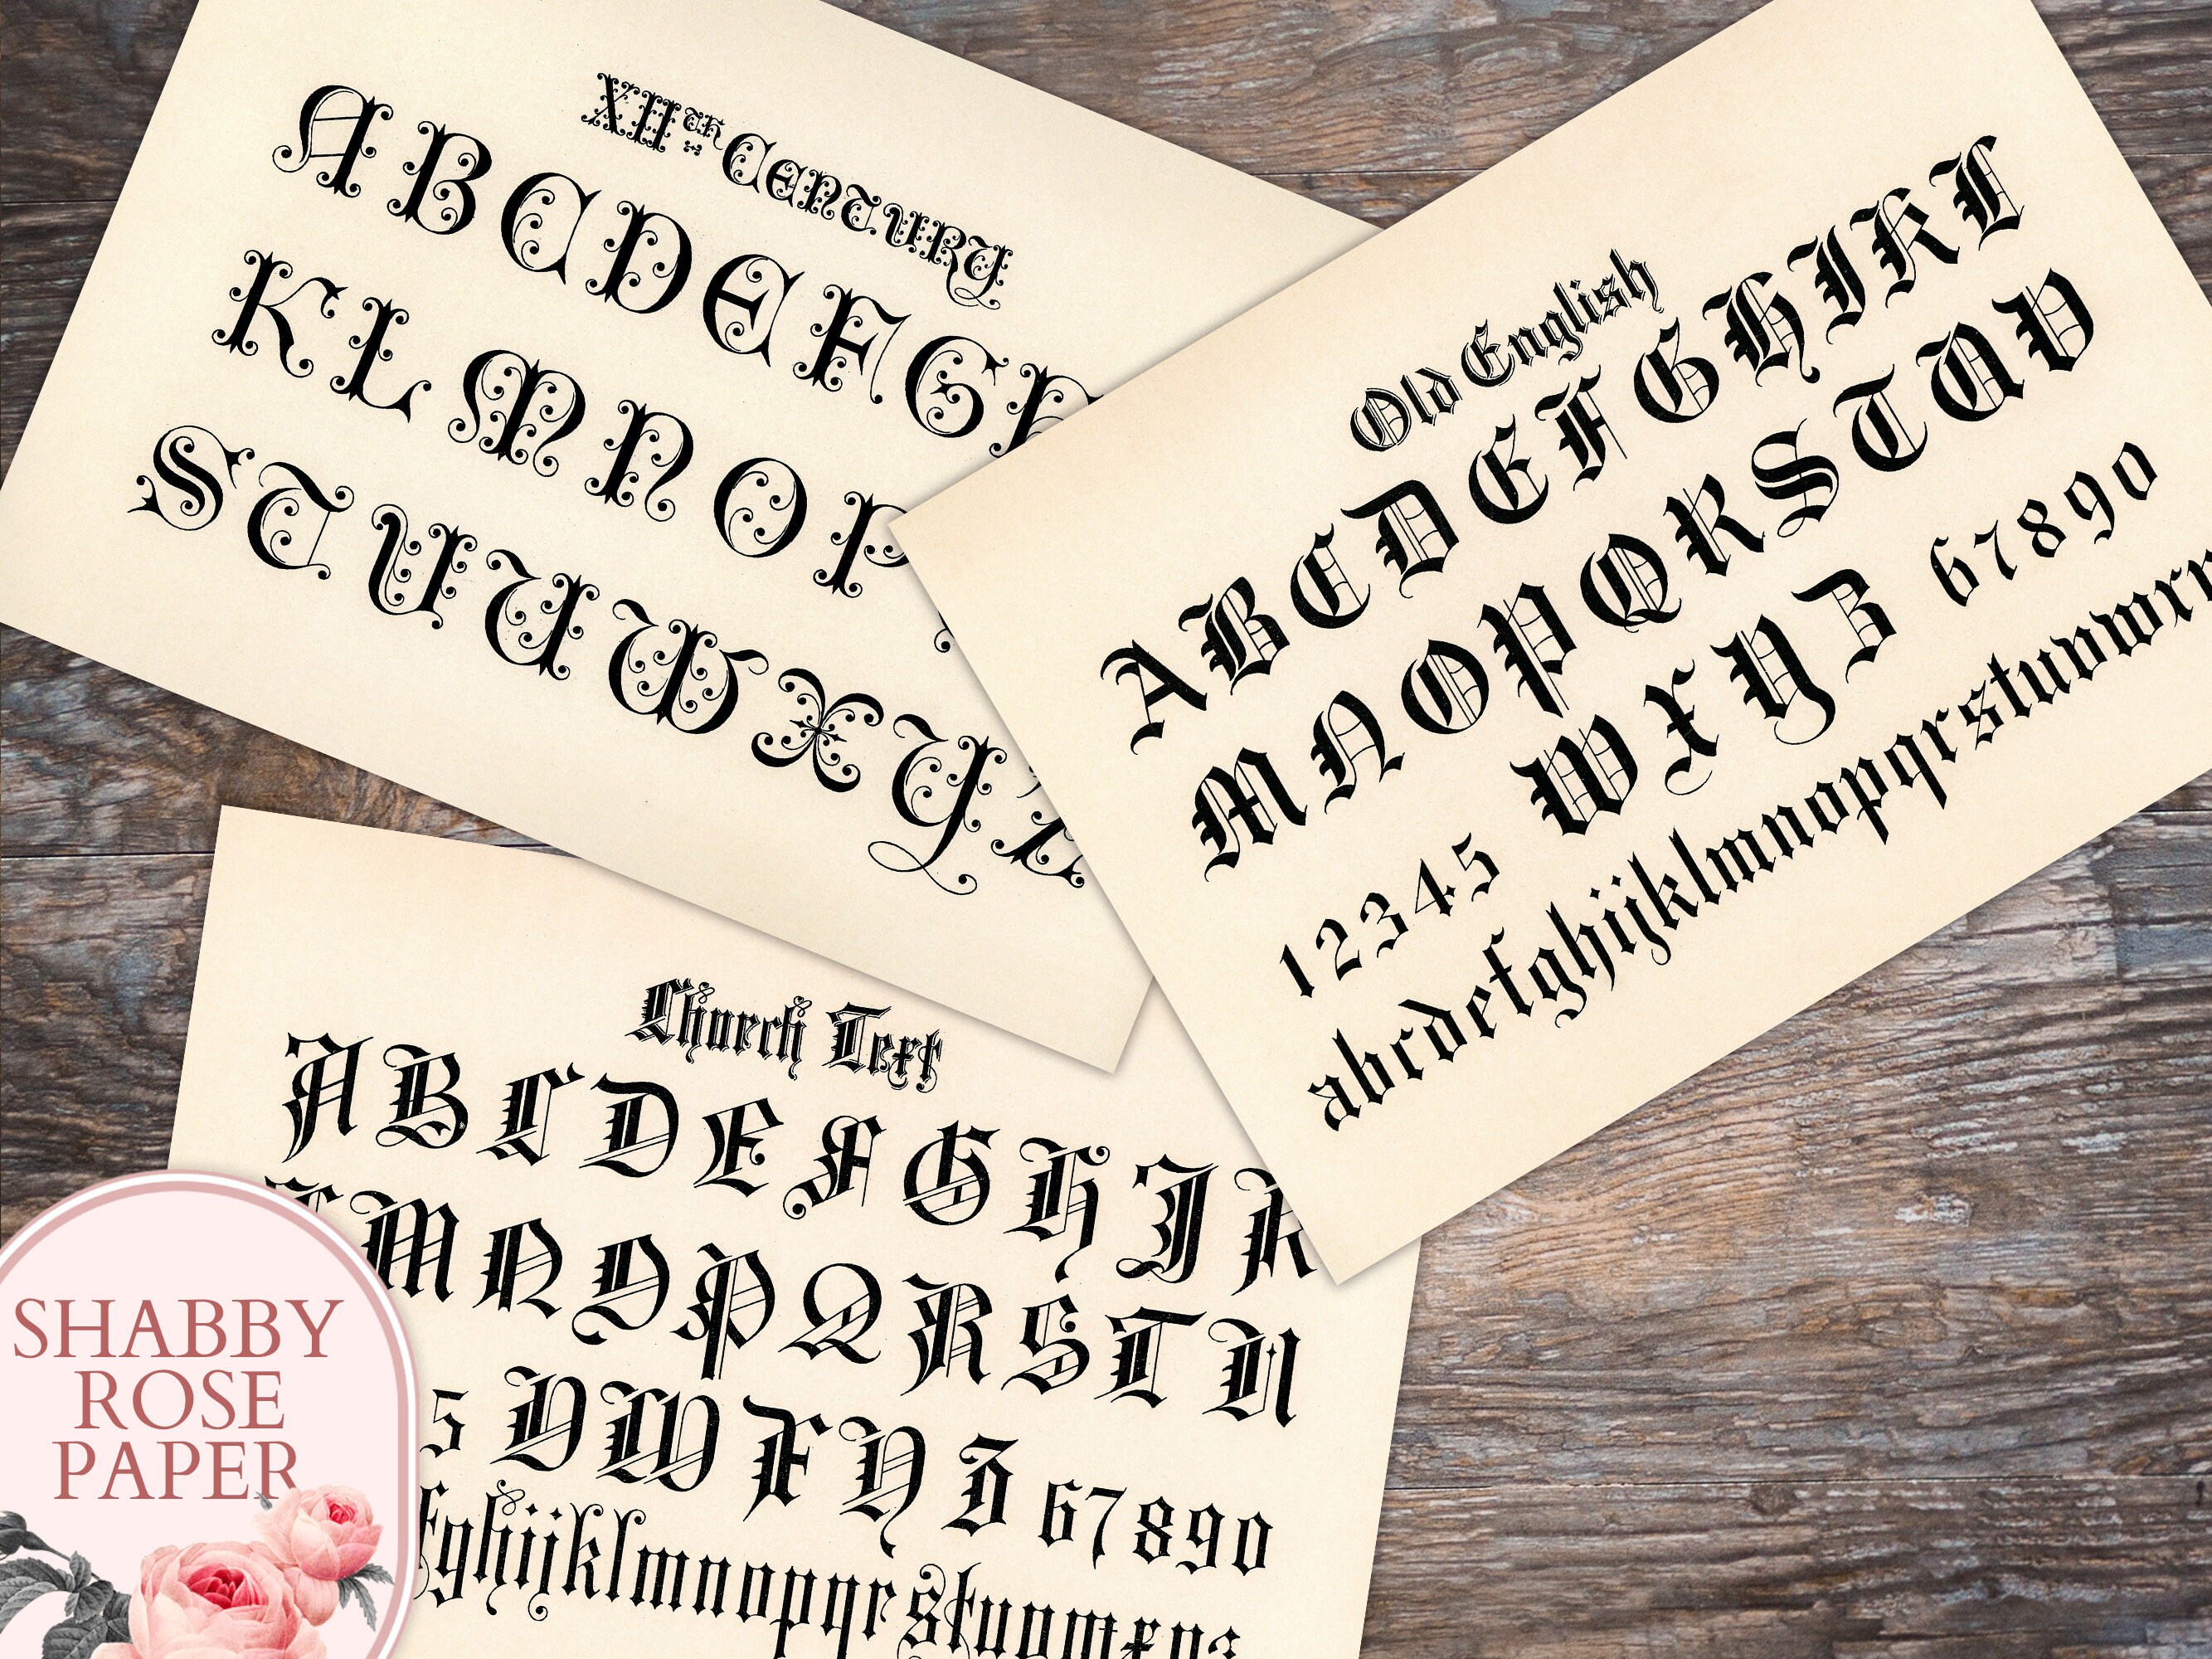 XIIth CENTURY
A B C D E F G H
K L M N O P
S T U U W X Y Z
Old English
A B C D E F G H I K L
M N O P Q R S T U V
1 2 3 4 5 W X Y Z 6 7 8 9 0
abcdefghijklmnopqrstuvwx
Church Text
A B C D E F G H I K
L M N O P Q R S T U
5 V W X Y Z 6 7 8 9 0
fghijklmnopqrstuvwxyz
SHABBY
ROSE
PAPER